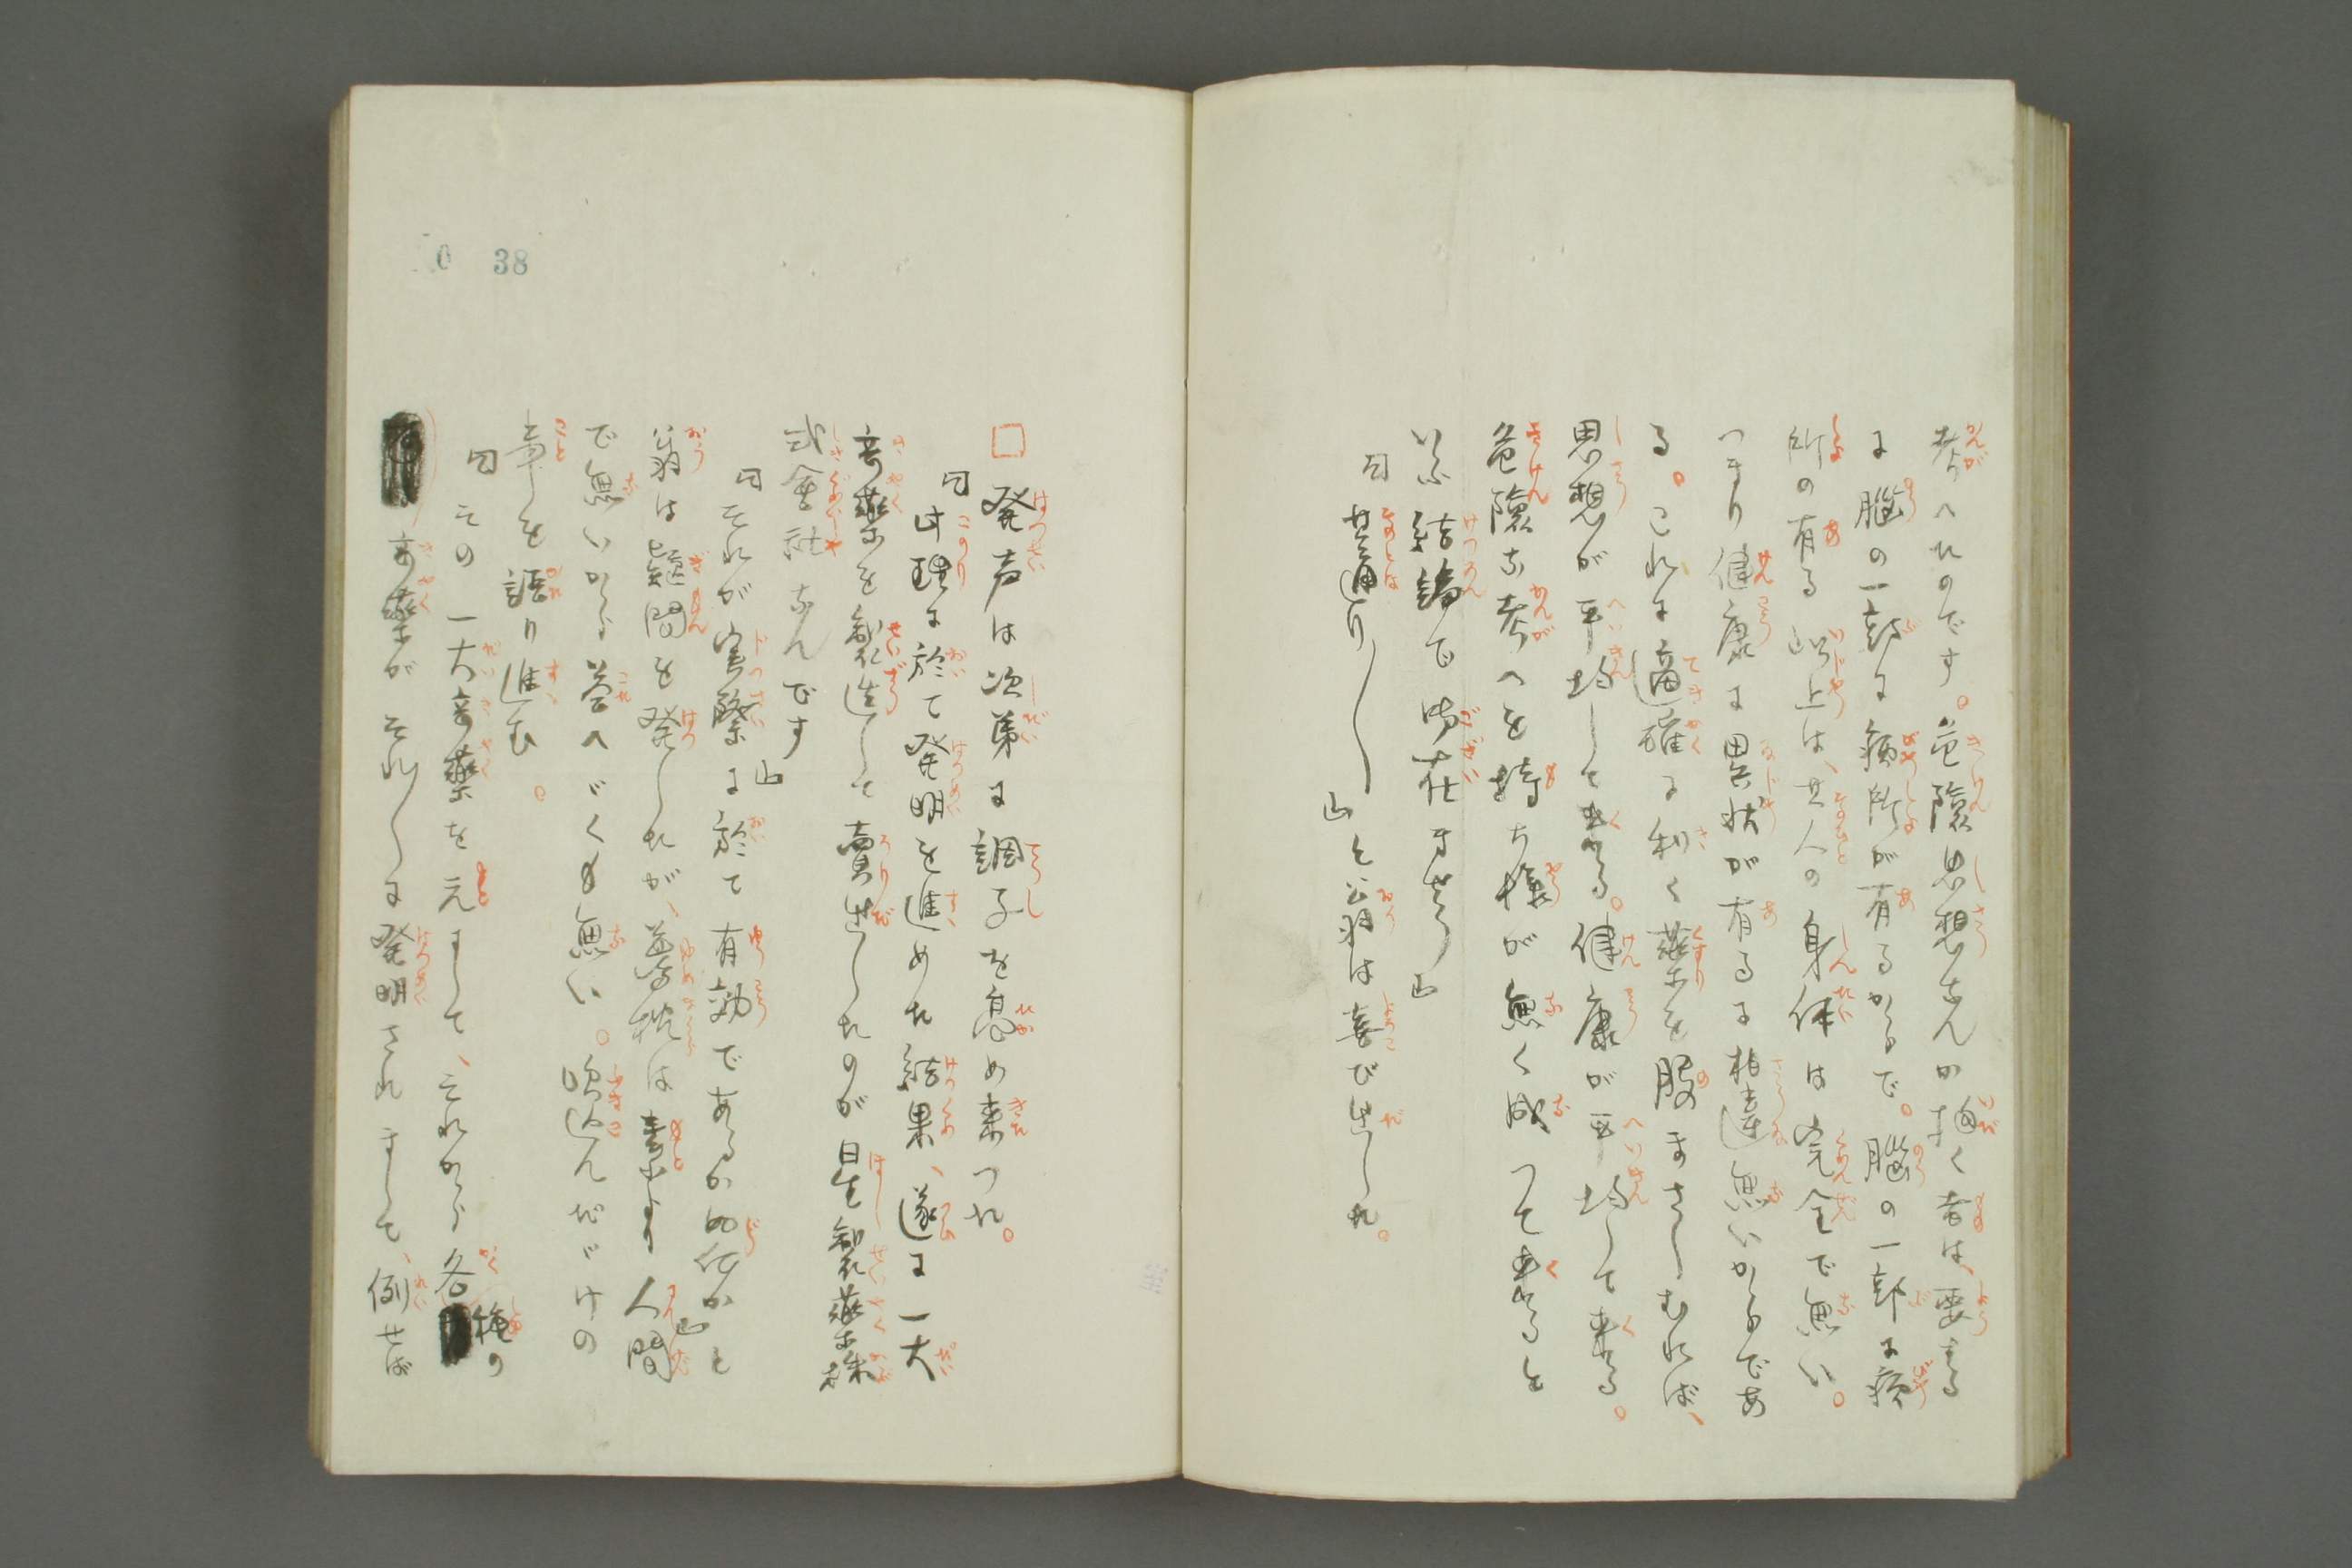 考へたのです。危險思想なんか抱く者は、要する
に腦の一部に病所が有るからで。腦の一部に病
所の有る以上は、其人の身体は完全で無い。
つまり健康に異状が有るに相違無いからであ
る。これに適確に利く薬を服まさしむれば、
思想が平均して来る。健康が平均して来る。
危險な考へを持ち様が無く成つて来ると
いふ結論で御在ませう』
『其通り〳〵』と翁は喜び出した。
□発声は次第に調子を高め来つた。
『此理に於て発明を進めた結果、遂に一大
奇薬を製造して賣出したのが星製薬株
式會社なんです』
『それが実際に於て有効であるか如何か』と
翁は疑問を発したが、夢枕は素より人間
で無いから答へべくも無い。吹込んだゞけの
事を語り進む。
『その一大奇薬を元にして、それから各種の
奇薬がそれ〳〵に発明されまして、例せば
0 38